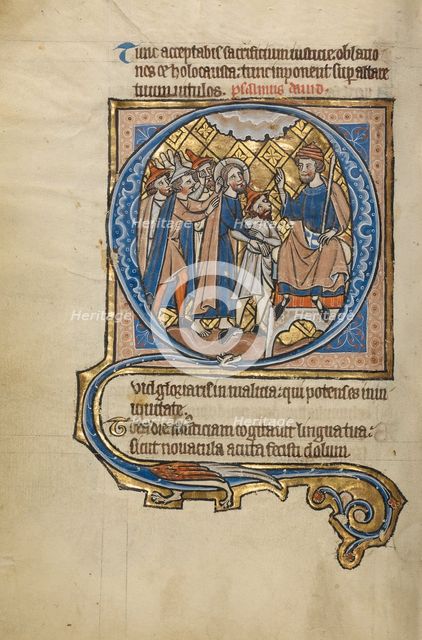 Tunc acceptabis sacrificium iusticie oblatio
nes et holocausta: tunc inponent sup altare
tuum uitulos. psalmus dauid.
Quid gloriaris in malicia: qui potens es in in
iquitate:
Tota die iniusticiam cogitauit lingua tua:
sicut nouacula acuta fecisti dolum
Heritage Images